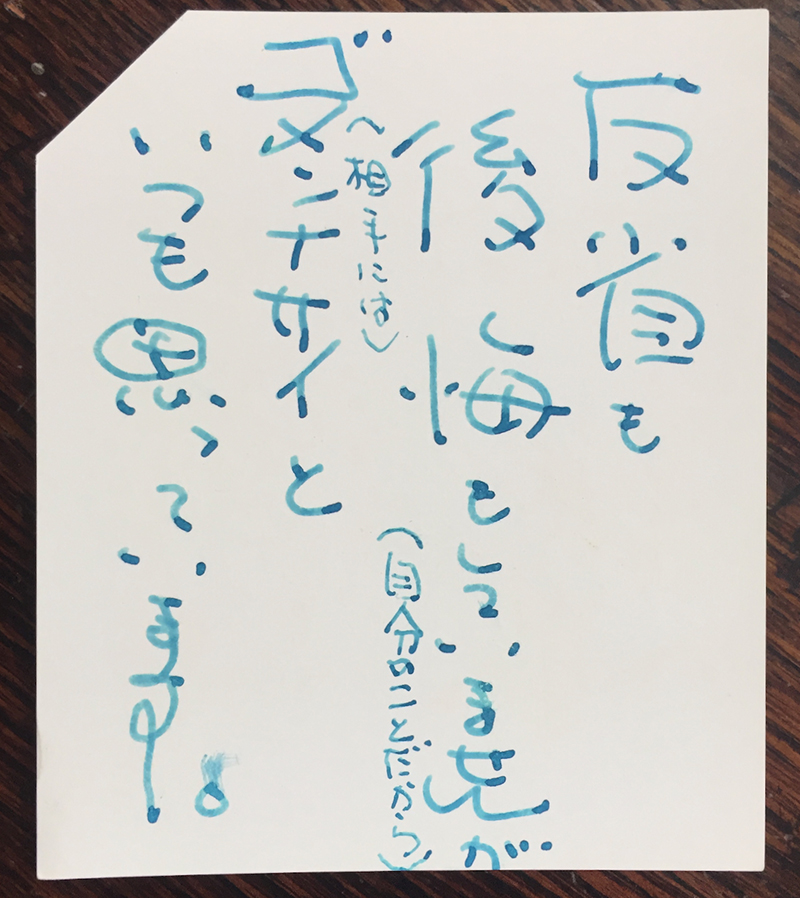 反省も
後悔もしていませんが
(自分のことだから)
(相手には)
ゴメンナサイと
いつも思っています。